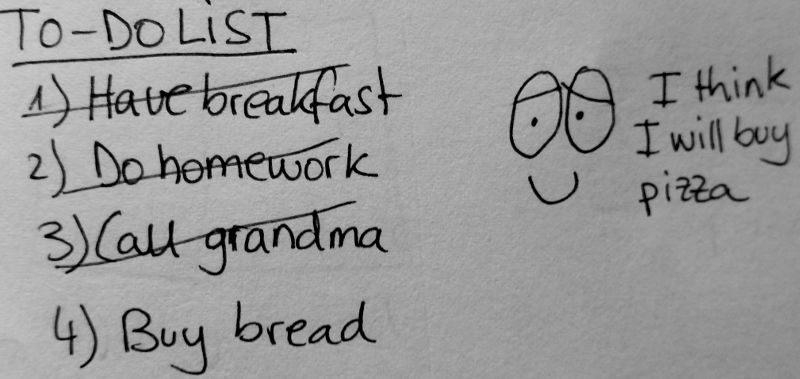 TO-DO LIST
1) Have breakfast
2) Do homework
3) Call grandma
4) Buy bread
I think
I will buy
pizza